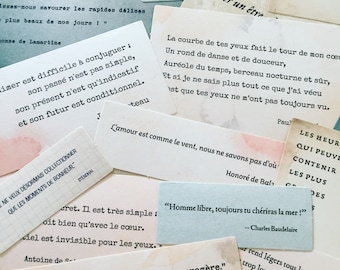 issez-nous savourer les rapides délices
plus beaux de nos jours ! "
onse de Lamartine
imer est difficile à conjuguer :
son passé n'est pas simple,
son présent n'est qu'indicatif
et son futur est conditionnel.
teau
La courbe de tes yeux fait le tour de mon cœu
Un rond de danse et de douceur,
Auréole du temps, berceau nocturne et sûr,
Et si je ne sais plus tout ce que j'ai vécu
est que tes yeux ne m'ont pas toujours vu.
Paul
L'amour est comme le vent, nous ne savons pas d'où
Honoré de Bal
LES HEUR
QUI PEUV
CONTENIR
LES PLUS
GRANDES
E NE VEUX DÉSORMAIS COLLECTIONNER
QUE LES MOMENTS DE BONHEUR."
STENDHAL
"Homme libre, toujours tu chériras la mer !"
— Charles Baudelaire
cret. Il est très simple :
oit bien qu'avec le cœur.
tiel est invisible pour les yeux.
Antoine de Sai
rend légers tous le